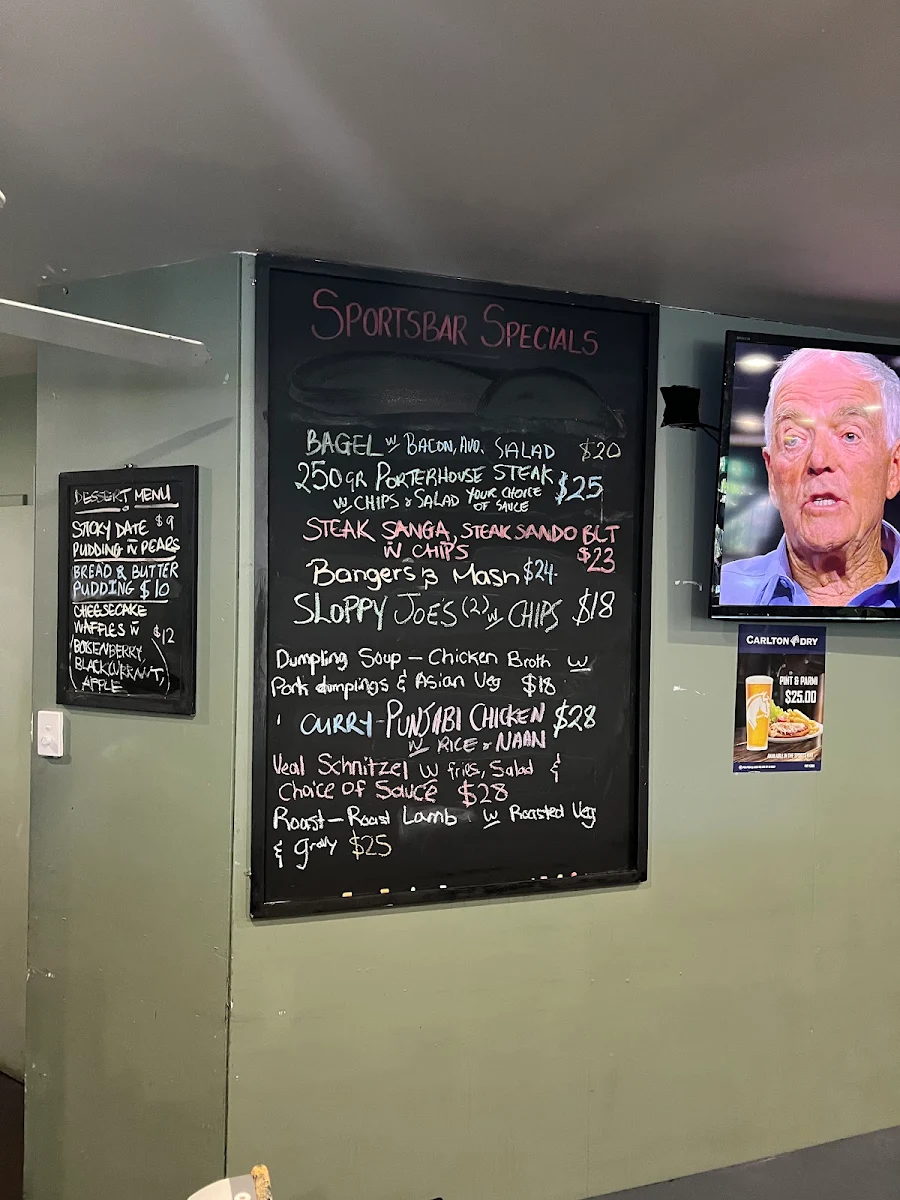 DESSERT MENU
STICKY DATE $9
PUDDING W PEARS
BREAD & BUTTER
PUDDING $10
CHEESECAKE
WAFFLES W $12
(BOYSENBERRY,
BLACKCURRANT,
APPLE)
SPORTSBAR SPECIALS
BAGEL W BACON, AVO. SALAD $20
250GR PORTERHOUSE STEAK $25
W CHIPS & SALAD YOUR CHOICE
OF SAUCE
STEAK SANGA, STEAK SANDO BLT
W CHIPS $23
Bangers & Mash $24
SLOPPY JOE'S (2) W CHIPS $18
Dumpling Soup - Chicken Broth W
Pork dumplings & Asian Veg $18
CURRY - PUNJABI CHICKEN $28
W RICE & NAAN
Veal Schnitzel W fries, Salad &
Choice of Sauce $28
Roast - Roast Lamb W Roasted Veg
& gravy $25
CARLTON DRY
PINT & PARMI
$25.00